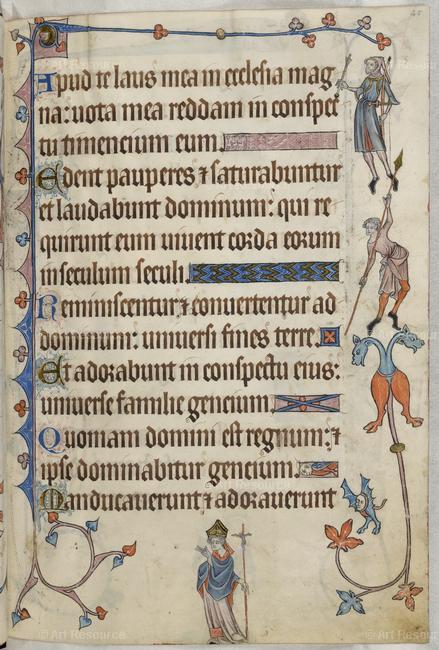 Apud te laus mea in ecclesia mag
na: uota mea reddam in conspec
tu timencium eum.
Edent pauperes ⁊ saturabuntur
et laudabunt dominum: qui re
quirunt eum uiuent corda eorum
in seculum seculi.
Reminiscentur ⁊ conuertentur ad
dominum: uniuersi fines terre.
Et adorabunt in conspectu eius:
uniuerse familie gencium.
Quoniam domini est regnum: ⁊
ipse dominabitur gencium.
Manducauerunt ⁊ adorauerunt
© Art Resource
© Art Resource